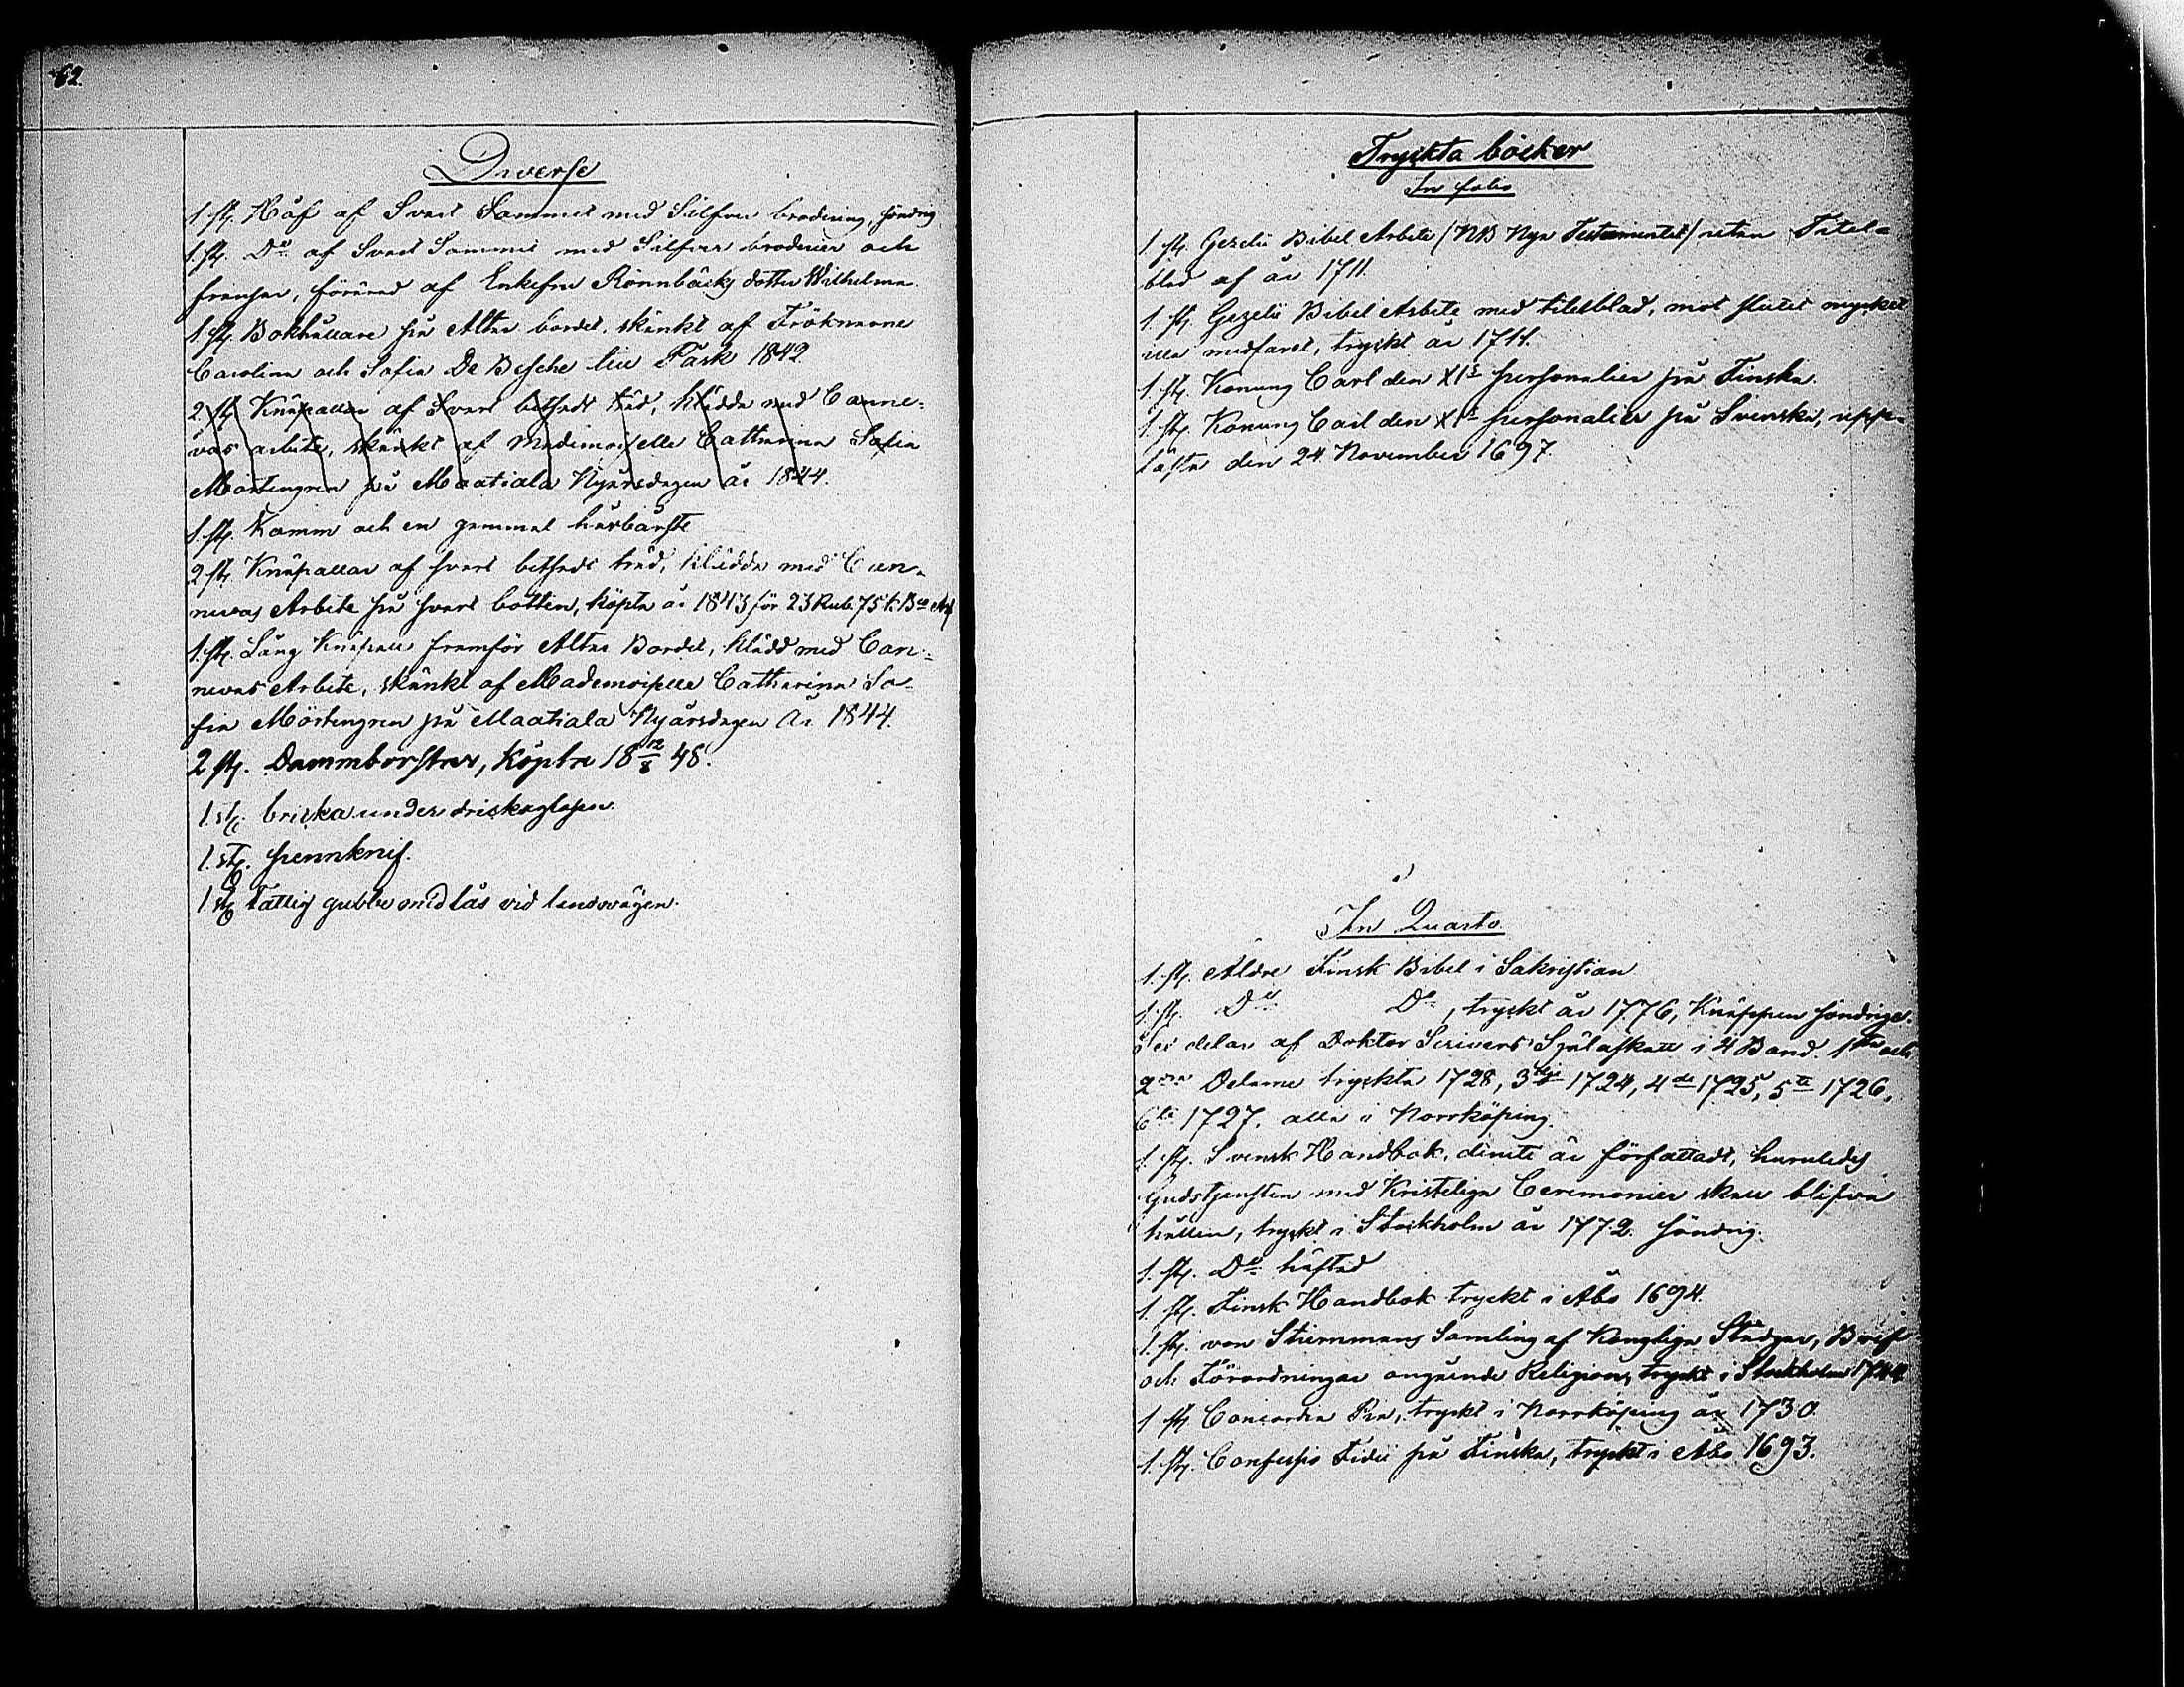 62.
Diverse
1. st. Håf af Svart Sammet med Silfver brodering, söndrig
1. st. Do af Svart Sammet med Silfver broderier och
fransar, förärad af Enkefru Rönnbäcks dotter Wilhelmina.
1. st. Bokhållare på Altar bordet, skänkt af Fröknarne
Carolina och Sofia De Besche till Påsk 1842.
2. st. Knäpallar af Svart betsadt träd, klädda med Canne-
vas arbete, skänkt af Mademoiselle Catharina Sofia
Mörtengren på Maatiala Nyårsdagen år 1844.
1. st. Kamm och en gammal hårbårste
2 st. Knäpallar af svart betsadt träd, klädda med Can-
nevas Arbete på svart botten, köpta år 1843 för 23 Rub. 75 k. Bco Ass
1. st. Lång Knäpall framför Altar Bordet, klädd med Can-
nevas Arbete, skänkt af Mademoiselle Catharina So-
fia Mörtengren på Maatiala Nyårsdagen År 1844.
2 st. Dammborstar, köpta 18 12/8 48.
1. st. bricka under dricksglasen.
1. st. pennknif.
1. st. Fattig gubbe med lås vid landsvägen.
Tryckta böcker
In folio
1. st. Gezelii Bibel Arbete (NB Nya Testamentet) utan Titel-
blad af år 1711.
1. st. Gezelii Bibel Arbete med titelblad, mot slutet mycket
illa medfaret, tryckt år 1711.
1. st. Konung Carl den XIs personalier på Finska.
1. st. Konung Carl den XIs personalier på Svenska, upp-
läste den 24 November 1697.
In Quarto
1. st. Äldre Finsk Bibel i Sakristian
1. st. Do Do, tryckt år 1776, Knäppen söndrige.
Sex delar af Doktor Scrivers Själaskatt i 4 Band. 1sta och
2dra Delarne tryckta 1728, 3dje 1724, 4de 1725, 5te 1726,
6te 1727, alla i Norrköping.
1. st. Svensk Handbok, deruti är författadt, huruledes
Gudstjensten med Kristeliga Ceremonier skall blifva
hållen, tryckt i Stockholm år 1772. söndrig.
1. st. Do häftad
1. st. Finsk Handbok tryckt i Åbo 1694.
1. st. von Stiernmans Samling af Kongliga Stadgar, Bref
och Förordningar angående Religion, tryckt i Stockholm 1744
1 st. Concordia Pia, tryckt i Norrköping år 1730.
1. st. Confessio Fidei på Finska, tryckt i Åbo 1693.